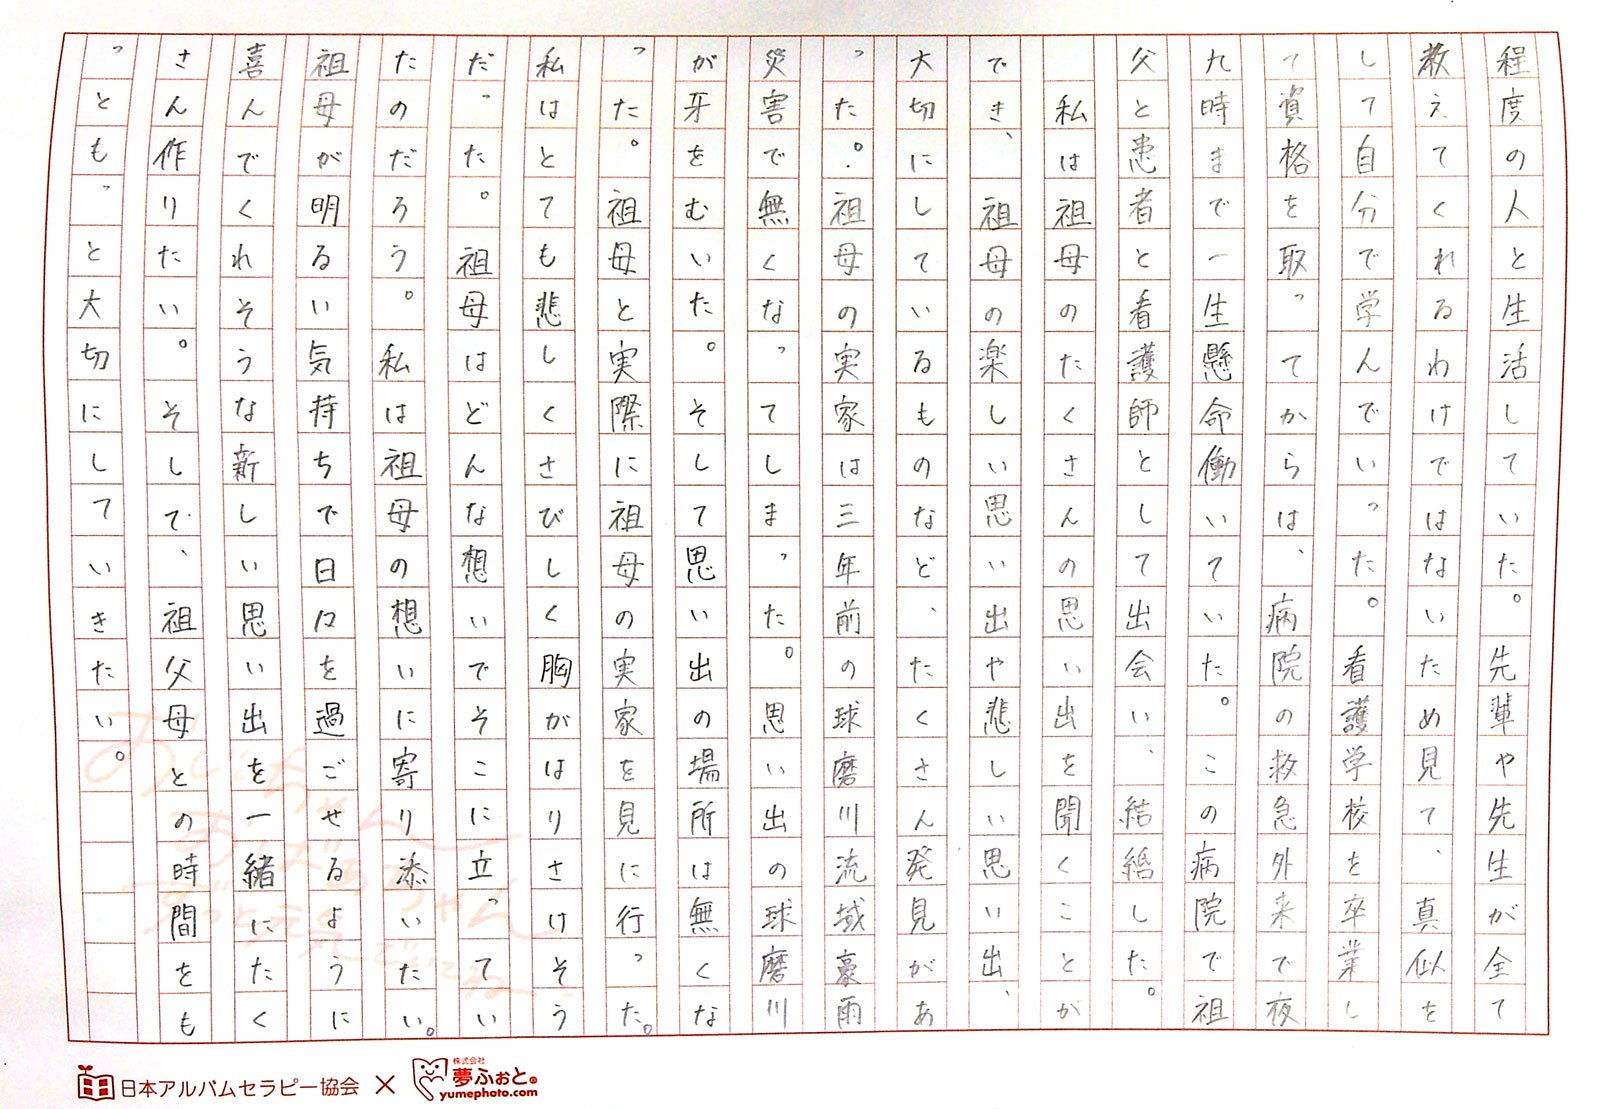 程度の人と生活していた。先輩や先生が全て
教えてくれるわけではないため見て、真似を
して自分で学んでいった。看護学校を卒業し
て資格を取ってからは、病院の救急外来で夜
九時まで一生懸命働いていた。この病院で祖
父と患者と看護師として出会い、結婚した。
私は祖母のたくさんの思い出を聞くことが
でき、祖母の楽しい思い出や悲しい思い出、
大切にしているものなど、たくさん発見があ
った。祖母の実家は三年前の球磨川流域豪雨
災害で無くなってしまった。思い出の球磨川
が牙をむいた。そして思い出の場所は無くな
った。祖母と実際に祖母の実家を見に行った。
私はとても悲しくさびしく胸がはりさけそう
だった。祖母はどんな想いでそこに立ってい
たのだろう。私は祖母の想いに寄り添いたい。
祖母が明るい気持ちで日々を過ごせるように
喜んでくれそうな新しい思い出を一緒にたく
さん作りたい。そして、祖父母との時間をも
っとも っと大切にしていきたい。
おじいちゃん
おばあちゃん
ずっと元気でいてね
日本アルバムセラピー協会 × 株式会社 夢ふぉと
yumephoto.com